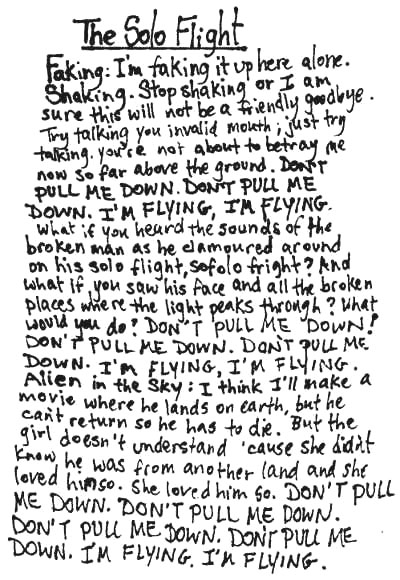 The Solo Flight
Faking: I'm faking it up here alone.
Shaking. Stop shaking or I am
sure this will not be a friendly goodbye.
Try talking you invalid mouth; just try
talking. you're not about to betray me
now so far above the ground. DON'T
PULL ME DOWN. DON'T PULL ME
DOWN. I'M FLYING, I'M FLYING.
What if you heard the sounds of the
broken man as he clamoured around
on his solo flight, sofolo fright? And
what if you saw his face and all the broken
places where the light peaks through? What
would you do? DON'T PULL ME DOWN!
DON'T PULL ME DOWN. DON'T PULL ME
DOWN. I'M FLYING, I'M FLYING.
Alien in the Sky: I think I'll make a
movie where he lands on earth, but he
can't return so he has to die. But the
girl doesn't understand 'cause she didn't
know he was from another land and she
loved him so. She loved him so. DON'T PULL
ME DOWN. DON'T PULL ME DOWN.
DON'T PULL ME DOWN. DON'T PULL ME
DOWN. I'M FLYING. I'M FLYING.